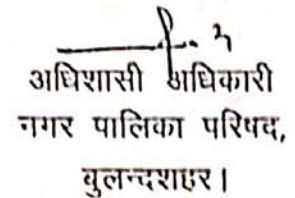 अधिशासी अधिकारी
नगर पालिका परिषद,
बुलन्दशहर।